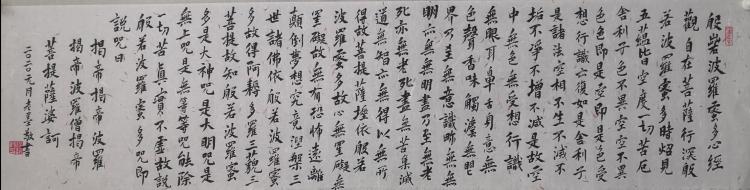 般若波羅蜜多心經
觀自在菩薩行深般
若波羅蜜多時炤見
五蘊皆空度一切苦厄
舍利子色不異空空不異
色色即是空空即是色受
想行識亦復如是舍利子
是諸法空相不生不滅不
垢不淨不增不減是故空
中無色無受想行識
無眼耳鼻舌身意無
色聲香味觸法無眼
界乃至無意識界無無
明亦無無明盡乃至無老
死亦無老死盡無苦集滅
道無智亦無得以無所
得故菩提薩埵依般若
波羅蜜多故心無罣礙無
罣礙故無有恐怖遠離
顛倒夢想究竟涅槃三
世諸佛依般若波羅蜜
多故得阿耨多羅三藐三
菩提故知般若波羅蜜
多是大神咒是大明咒是
無上咒是無等等咒能除
一切苦真實不虛故說
般若波羅蜜多咒即
說咒曰
揭帝揭帝波羅
揭帝波羅僧揭帝
菩提薩婆訶
二〇二〇元月
敬書